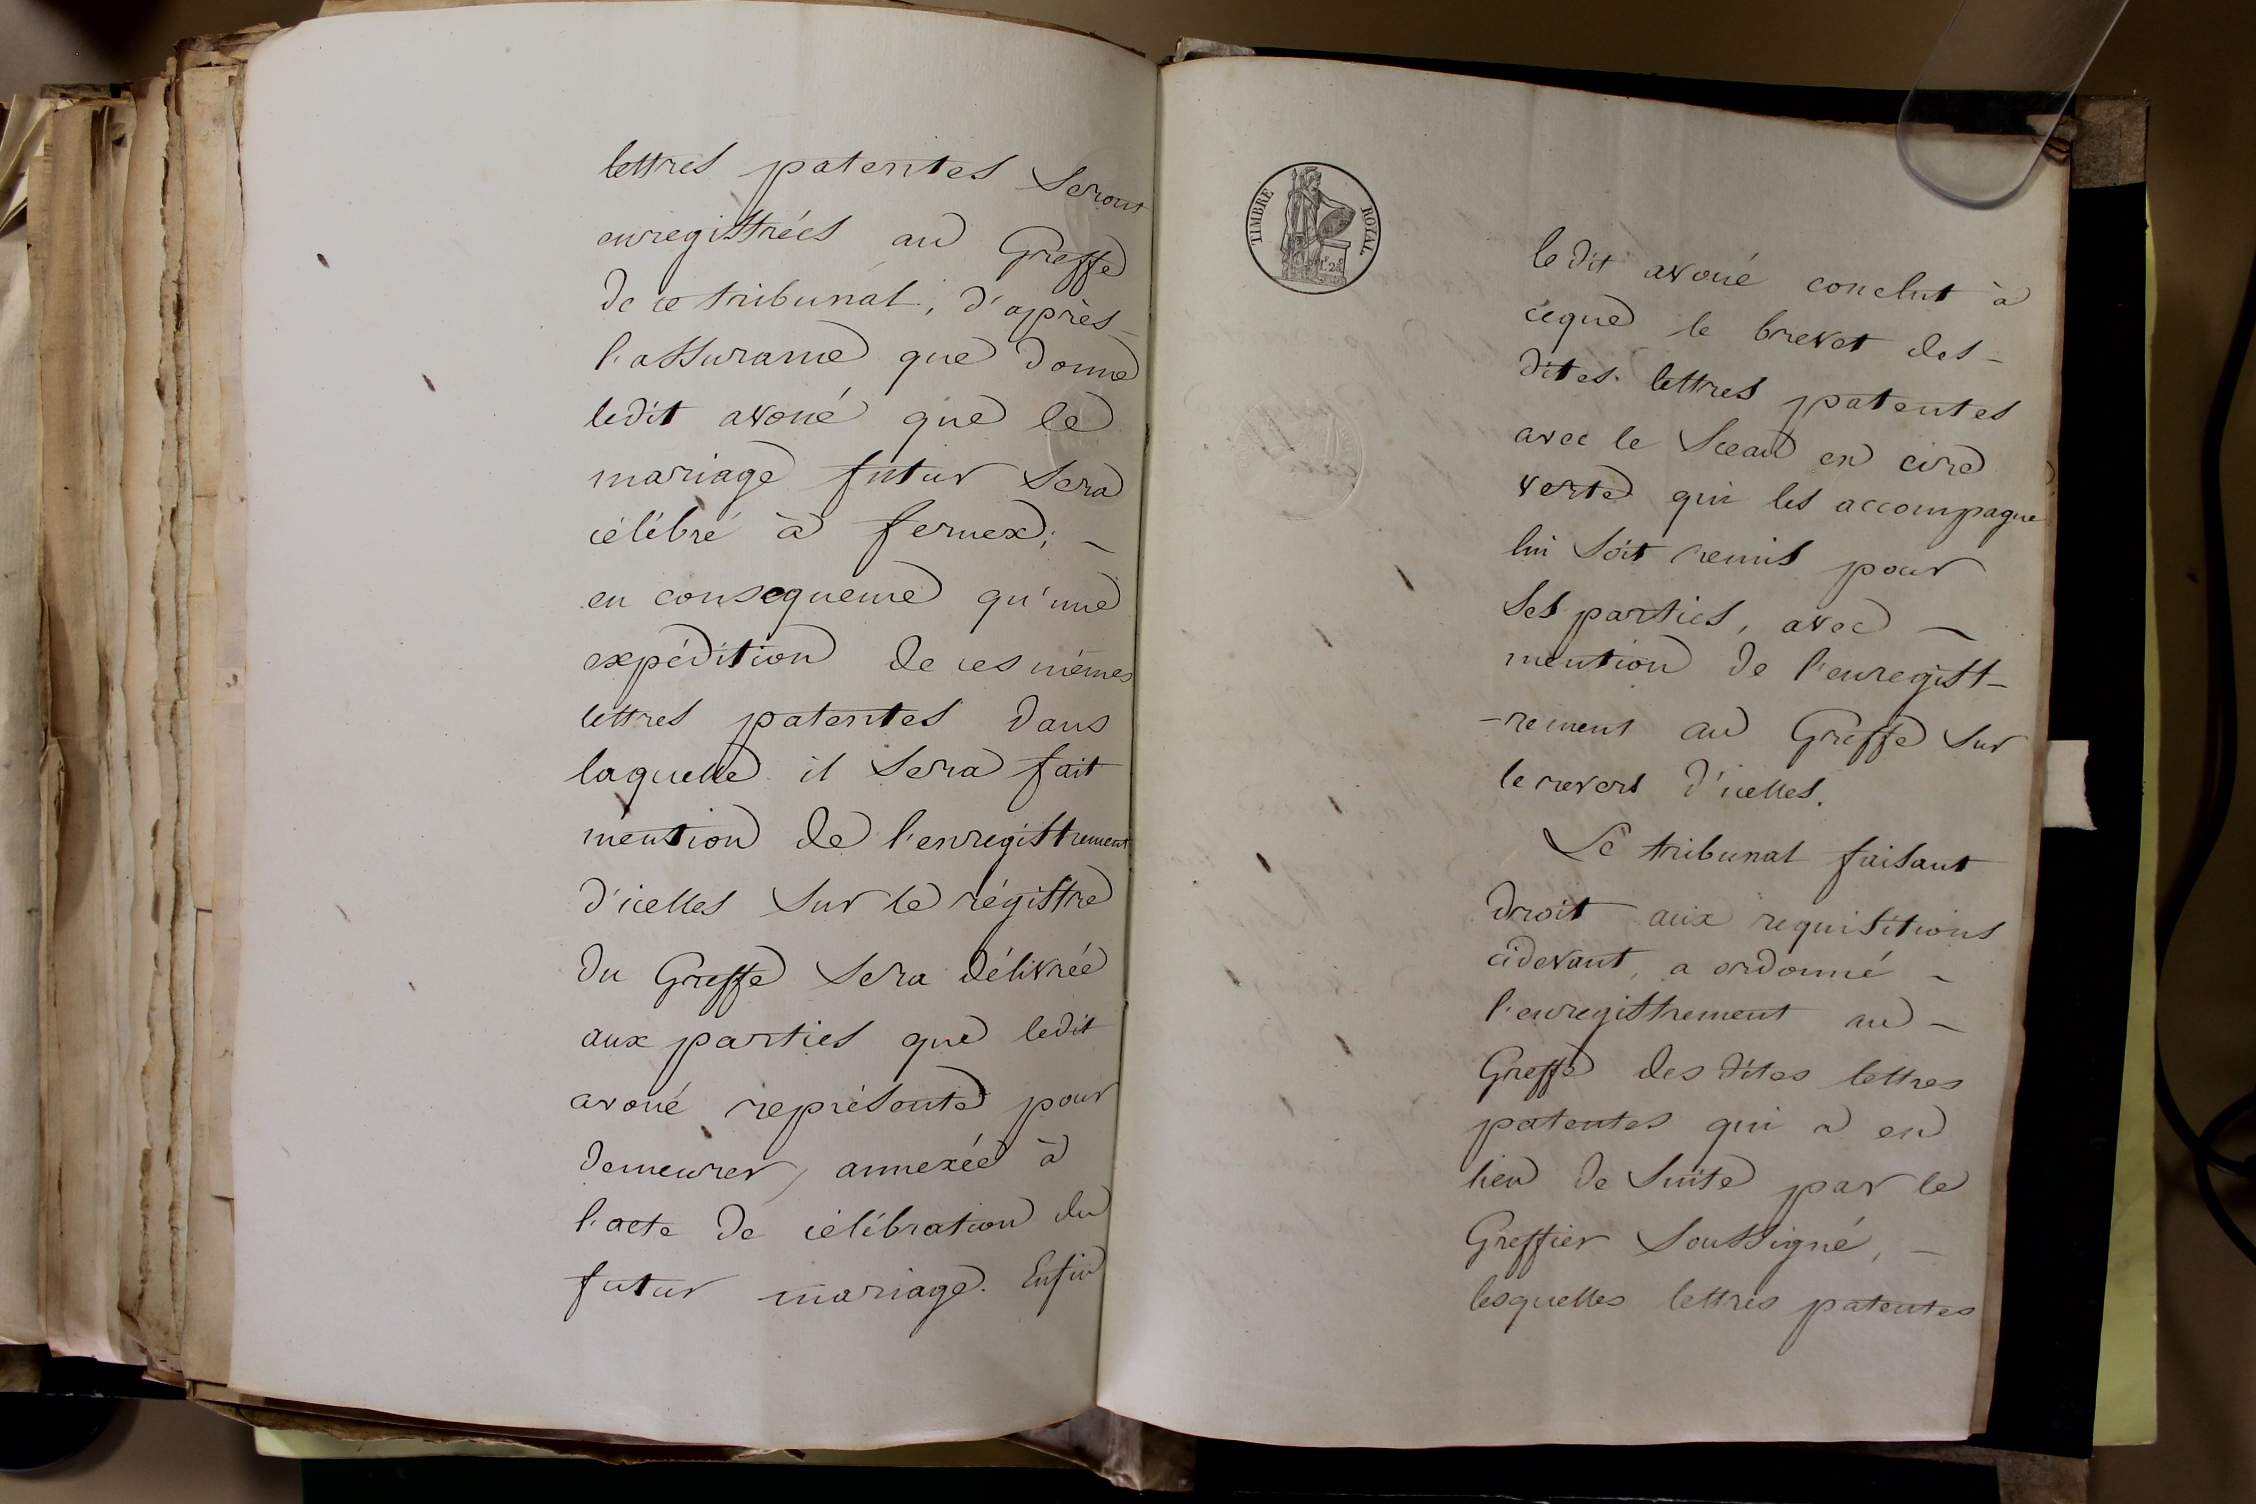 lettres patentes seront
enregistrées au Greffe
de ce tribunal, d'après
l'assurance que donne
ledit avoué que le
mariage futur sera
célébré à fernex; -
en consequence qu'une
expédition de ces mêmes
lettres patentes dans
laquelle il sera fait
mention de l'enregistrement
d'icelles sur le régistre
du Greffe sera délivrée
aux parties que ledit
avoué représente pour
demeurer, annexée à
l'acte de célébration du
futur mariage. Enfin
TIMBRE ROYAL
ledit avoué conclut à
ceque le brevet des-
dites lettres patentes
avec le Sceau en cire
verte qui les accompagne
lui soit remis pour
ses parties, avec -
mention de l'enregist-
-rement au Greffe sur
le revers d'icelles.
Le tribunal faisant
droit aux requisitions
cidevant, a ordonné -
l'enregistrement au -
Greffe des dites lettres
patentes qui a eu
lieu de suite par le
Greffier soussigné, -
lesquelles lettres patentes